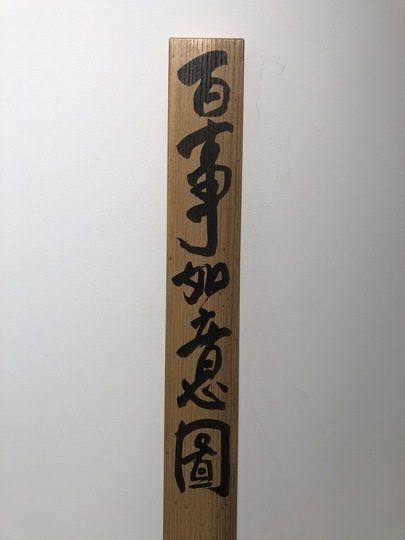 百事如意圖